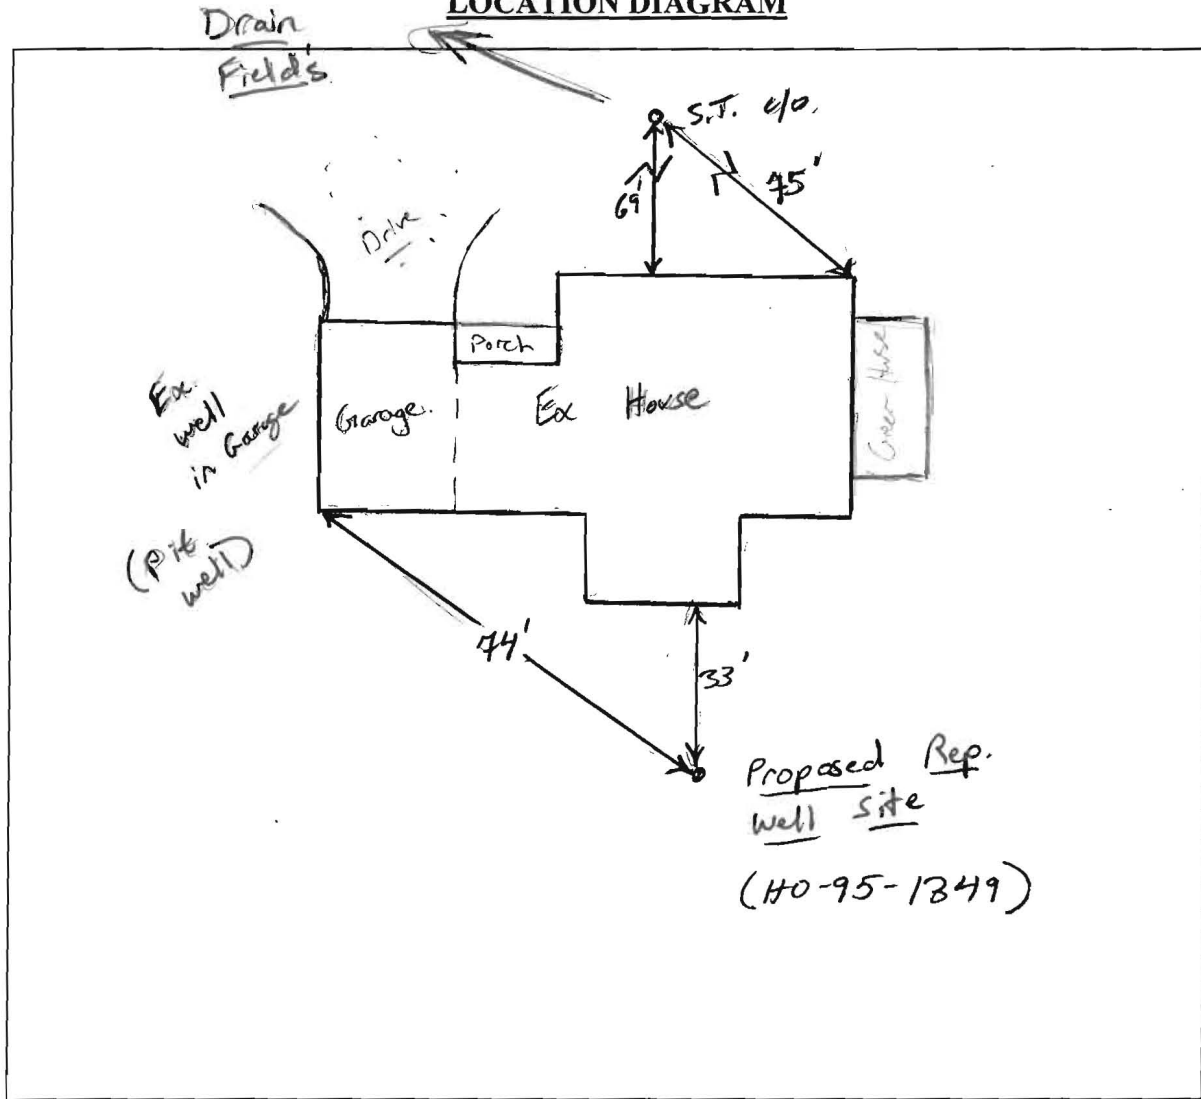 LOCATION DIAGRAM
Drain
Fields
S.T. c/o.
69'
75'
Drive
Porch
Ex.
well
in Garage
Garage.
Ex House
Green Hse
(Pit
well)
74'
33'
Proposed Rep.
well site
(HO-95-1349)